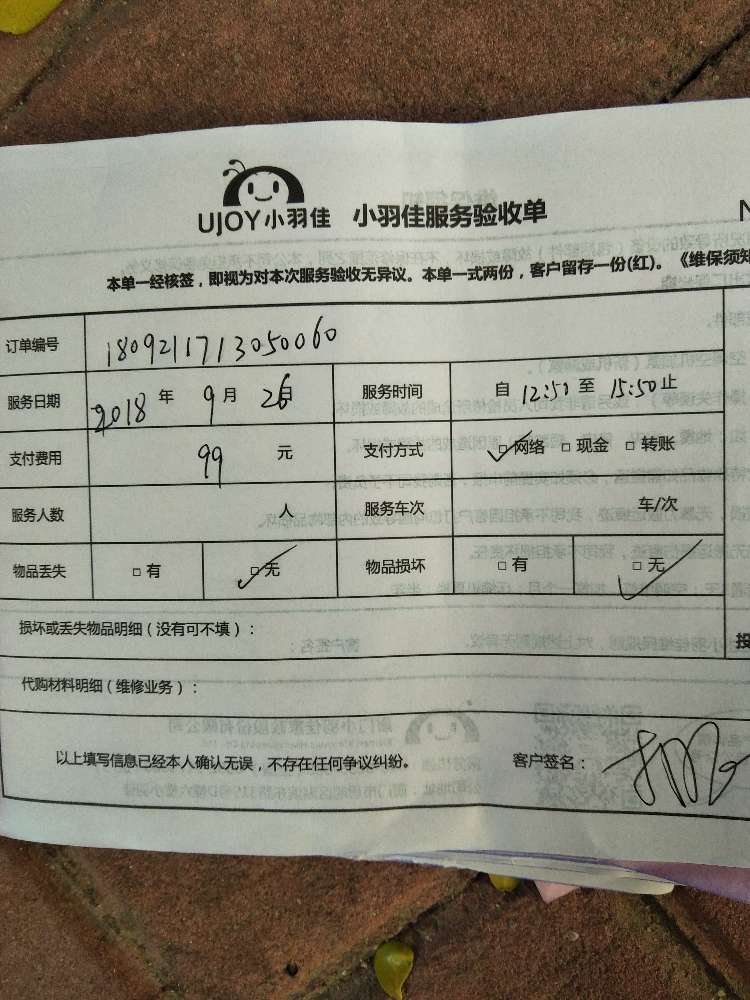 UJOY小羽佳 小羽佳服务验收单 N
本单一经核签，即视为对本次服务验收无异议。本单一式两份，客户留存一份(红)。《维保须知
订单编号 1809211713050060
服务日期 2018 年 9 月 26日 服务时间 自 12:50 至 15:50 止
支付费用 99 元 支付方式 □网络 □现金 □转账
服务人数 人 服务车次 车/次
物品丢失 □有 □无 物品损坏 □有 □无
损坏或丢失物品明细（没有可不填）：
投
代购材料明细（维修业务）：
以上填写信息已经本人确认无误，不存在任何争议纠纷。 客户签名：